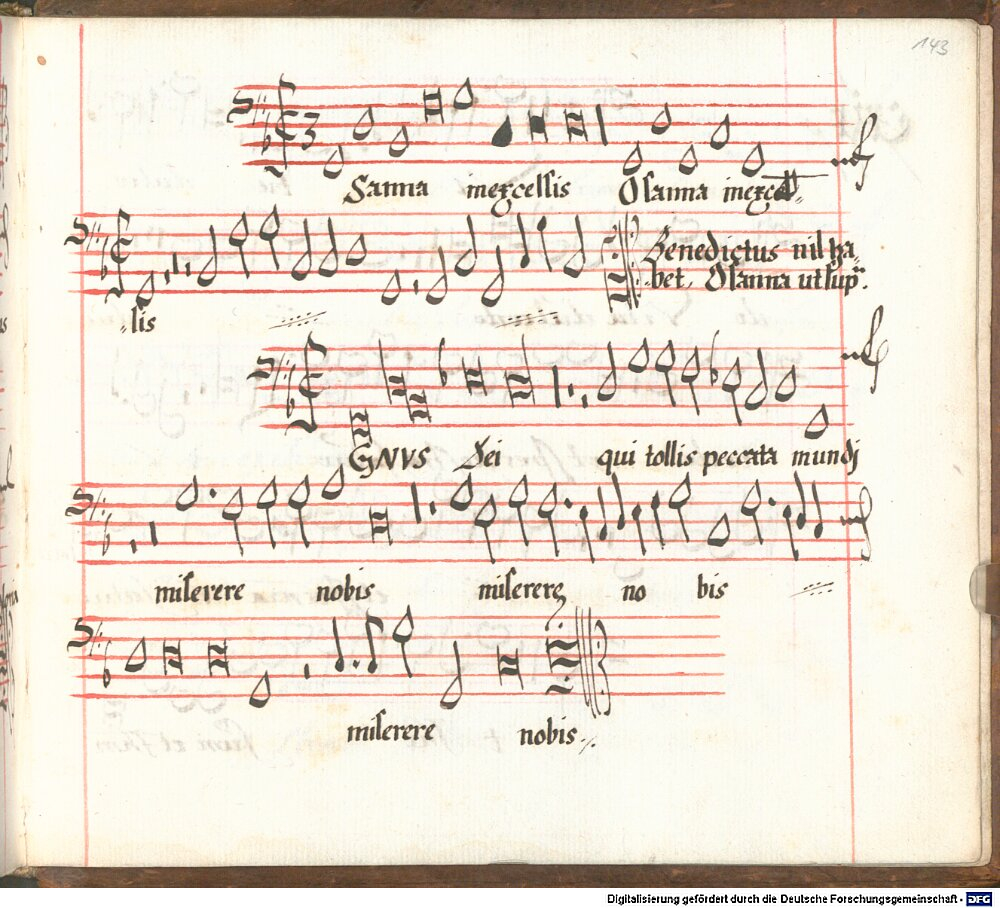 143
Sanna inexcelsis Osanna inexcel-
-sis
Benedictus nil ha-
-bet. Osanna ut sup:
GNVS Dei qui tollis peccata mundi
miserere nobis miserere no bis
miserere nobis
Digitalisierung gefördert durch die Deutsche Forschungsgemeinschaft - DFG